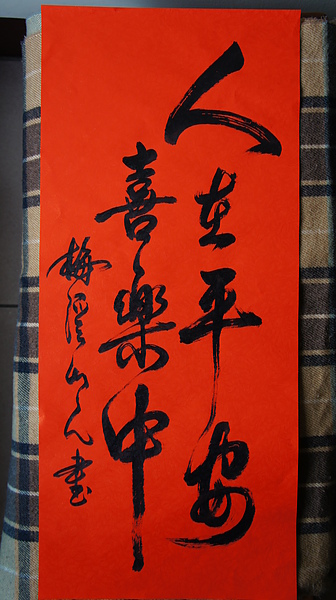 人在平安
喜樂中
梅溪山人書